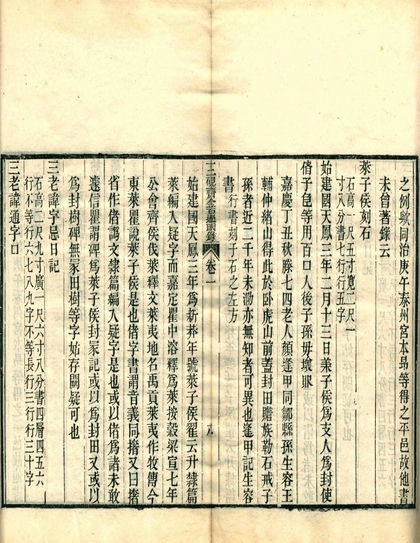 之例歟同治庚午泰州宮本昂等得之平邑故他書
未曾著錄云
萊子侯刻石
石高一尺五寸寬二尺一
寸八分書七行行五字
始建國天鳳三年二月十三日萊子侯爲支人爲封使
偖子等用百口人後子孫毋壞敗
嘉慶丁丑秋滕七四老人顏逢甲同鄒縣孫生容王
輔仲緒山得此於臥虎山前蓋封田贍族勒石戒子
孫者近二千年未泐亦無知者可異也逢甲記生容
書 行書刻于石之左方
十二硯齋金石過眼錄 卷一
始建國天鳳三年爲新莽年號萊子侯翟云升隸篇
萊編入疑字而嘉定瞿中溶釋爲萊按穀梁宣七年
公會齊侯伐萊釋文萊夷地名禹貢萊夷作牧傳今
東萊瞿說萊子侯是也偖字書謂音義同撦又曰撦
省作偖譌文隸篇編入疑字是也或以偖爲諸未敢
遽信瞿謂碑爲萊子侯封冢記或以爲封田又或以
爲封樹碑無冢田樹等字始存闕疑可也
三老諱字忌日記
石高二尺九寸廣一尺六寸八分書四層四五六
行不等字六七八九字不等長行三行行三十字
三老諱通字口